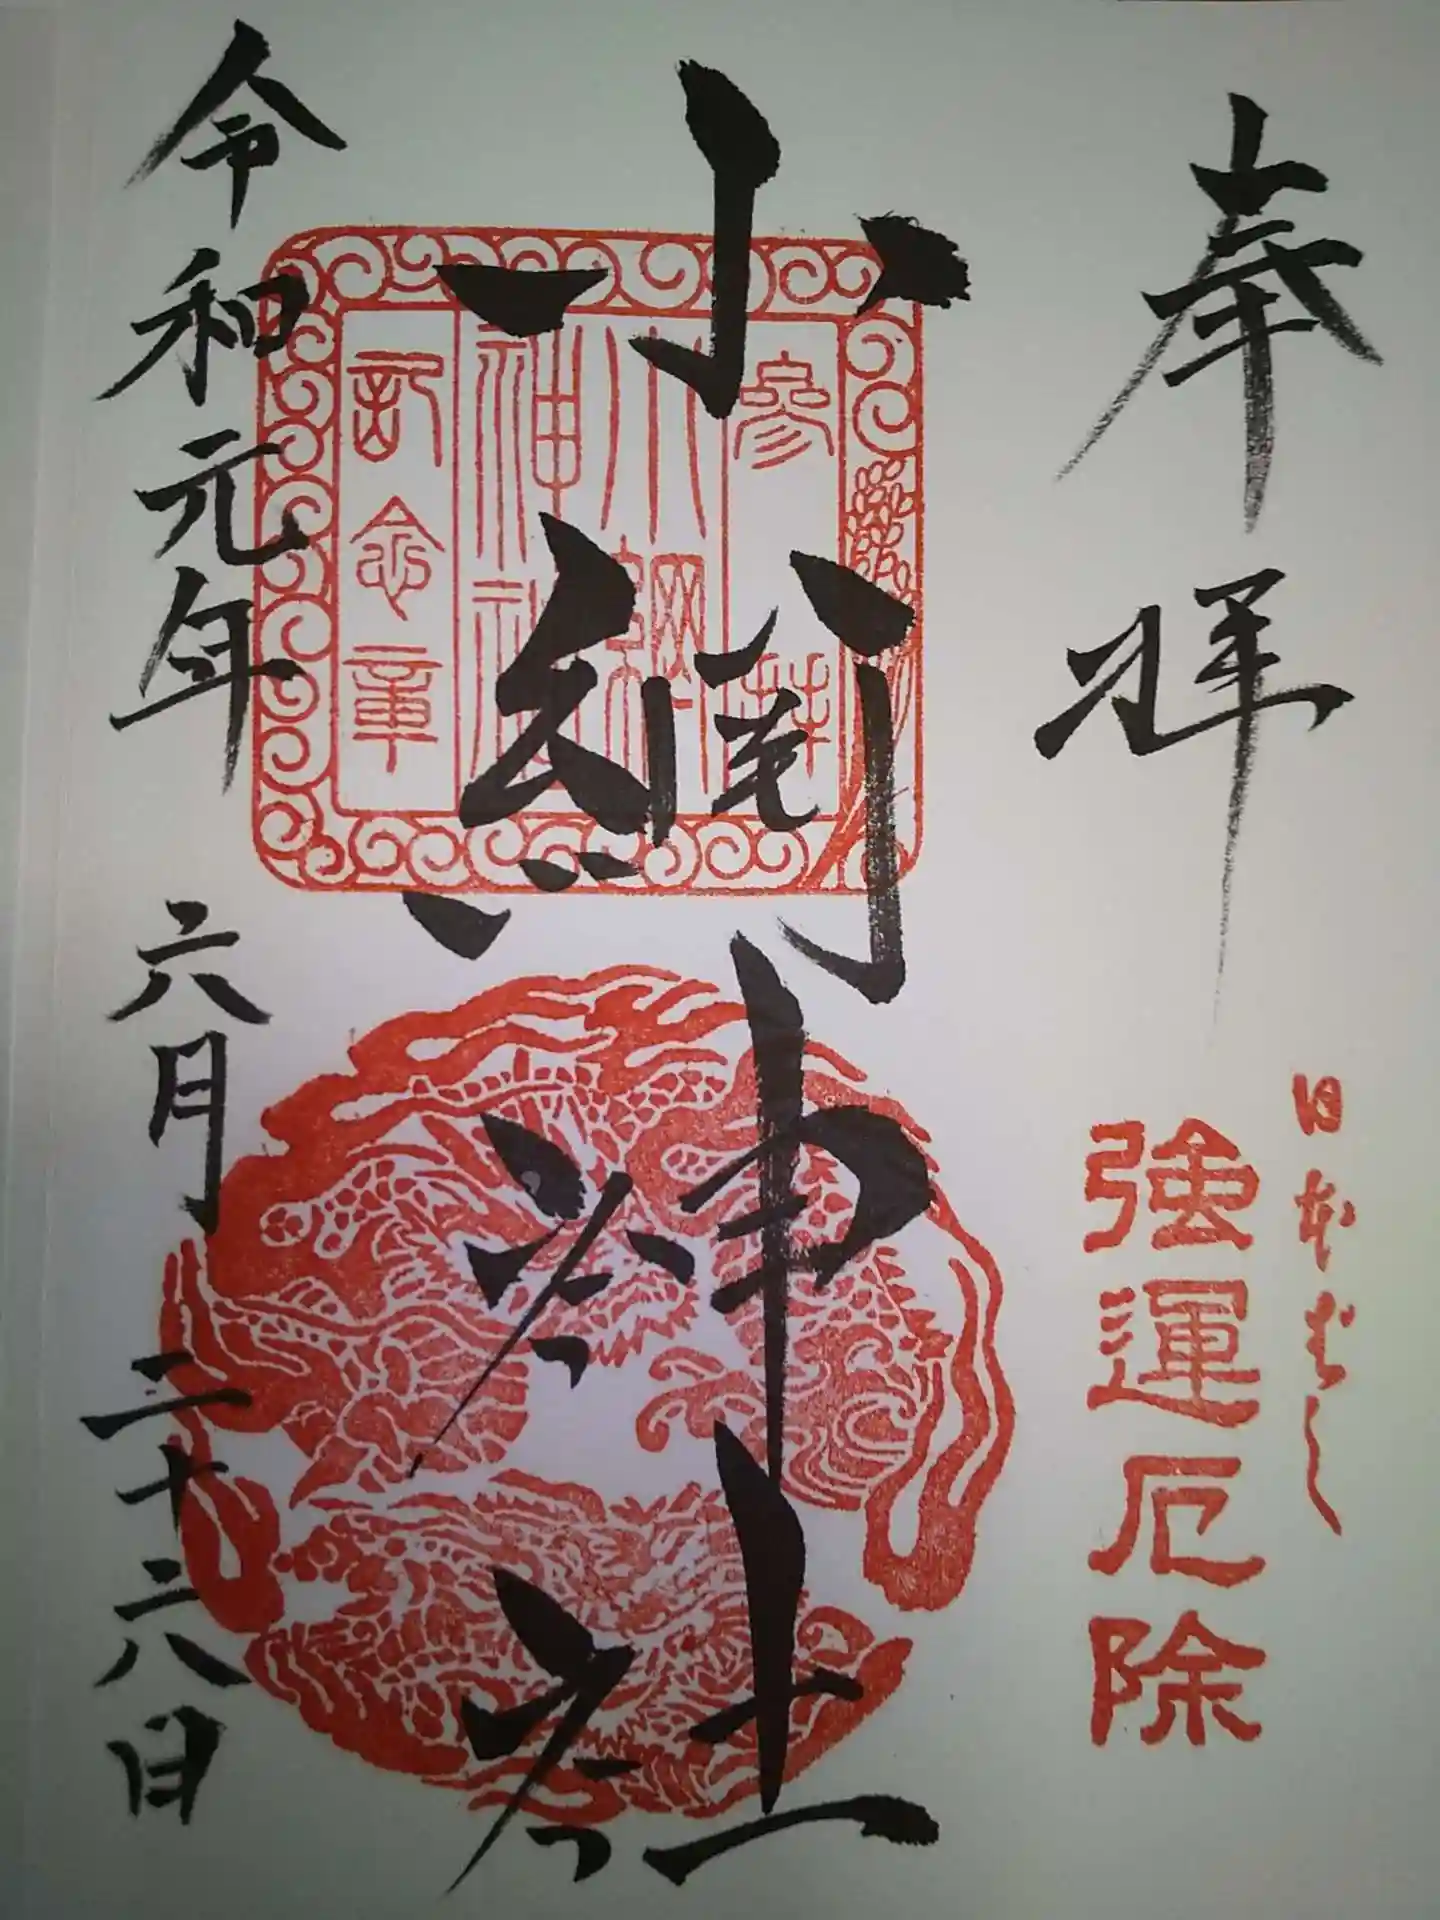 奉拝
日本ばし
強運厄除
小網神社
參拝
小網
神社
記念章
令和元年 六月 二十六日